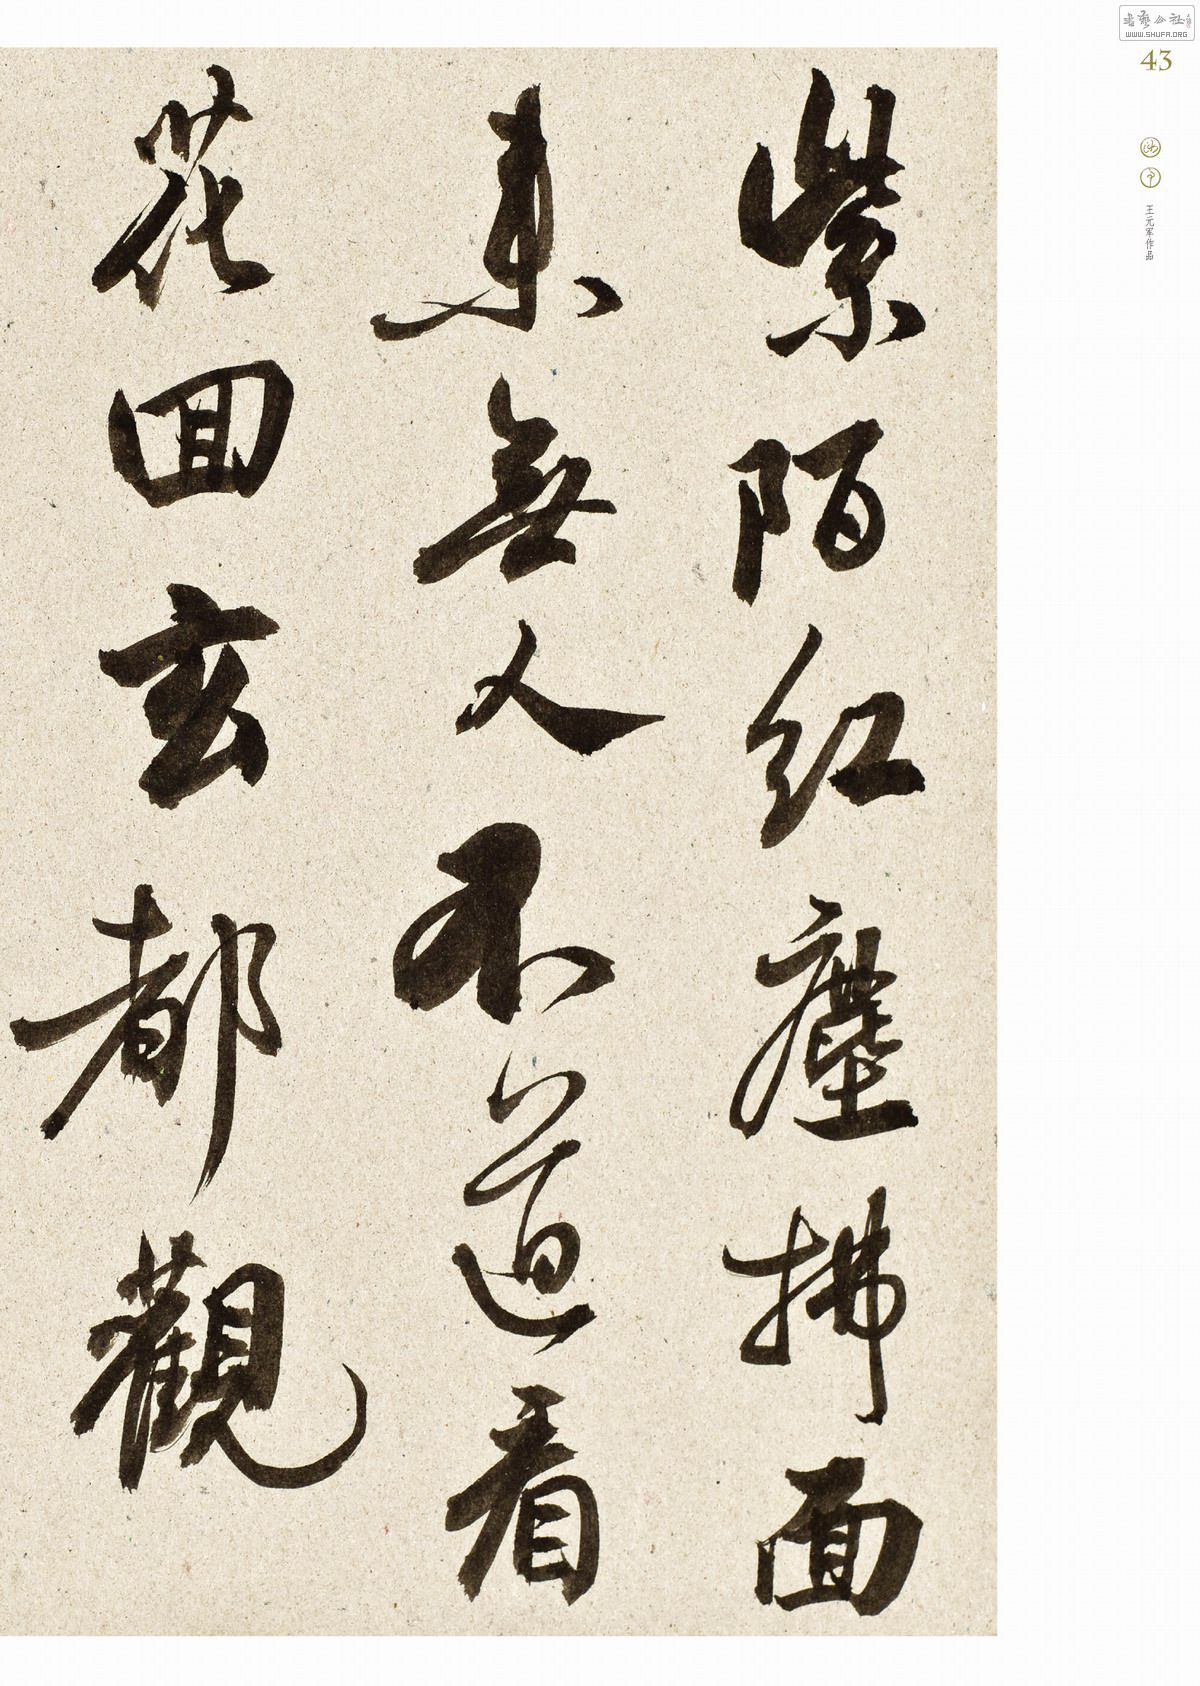 紫陌红塵拂面
来無人不道看
花回玄都觀
43
王元军作品
WWW.SHUFA.ORG